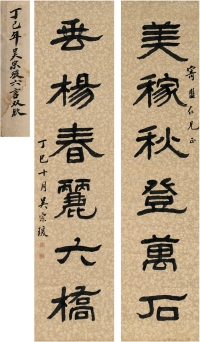 美稼秋登萬石
寄盦仁兄正
垂楊春麗六橋
丁巳十月 吴宗瑗
丁巳年吴宗瑗六言双款